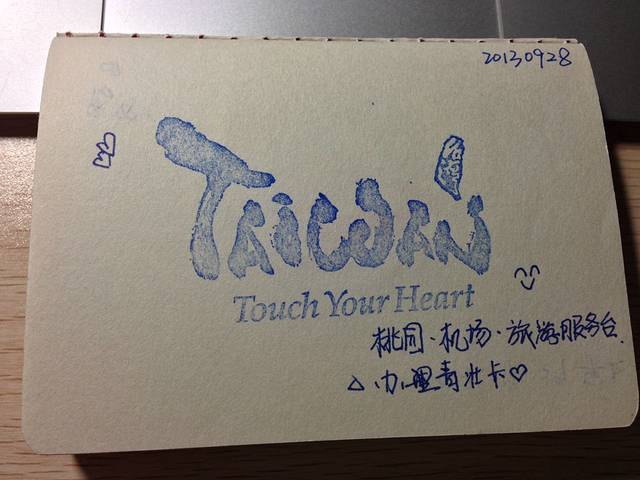 20130928
TAIWAN
Touch Your Heart
桃园·机场·旅游服务台.
△办理青壮卡♡